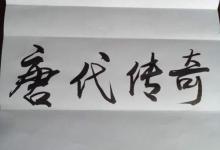 唐代传奇